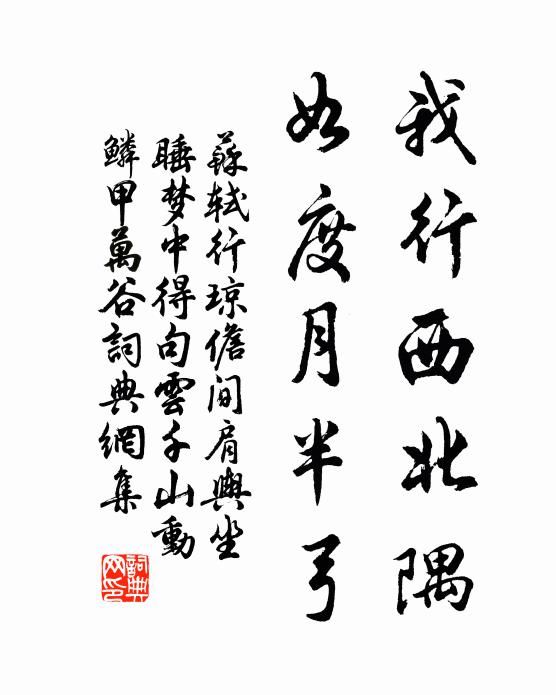 我行西北隅
如度月半弓
蘇軾行琼儋间肩輿坐
睡梦中得句雲千山動
鱗甲萬谷詞典網集
詞典網印